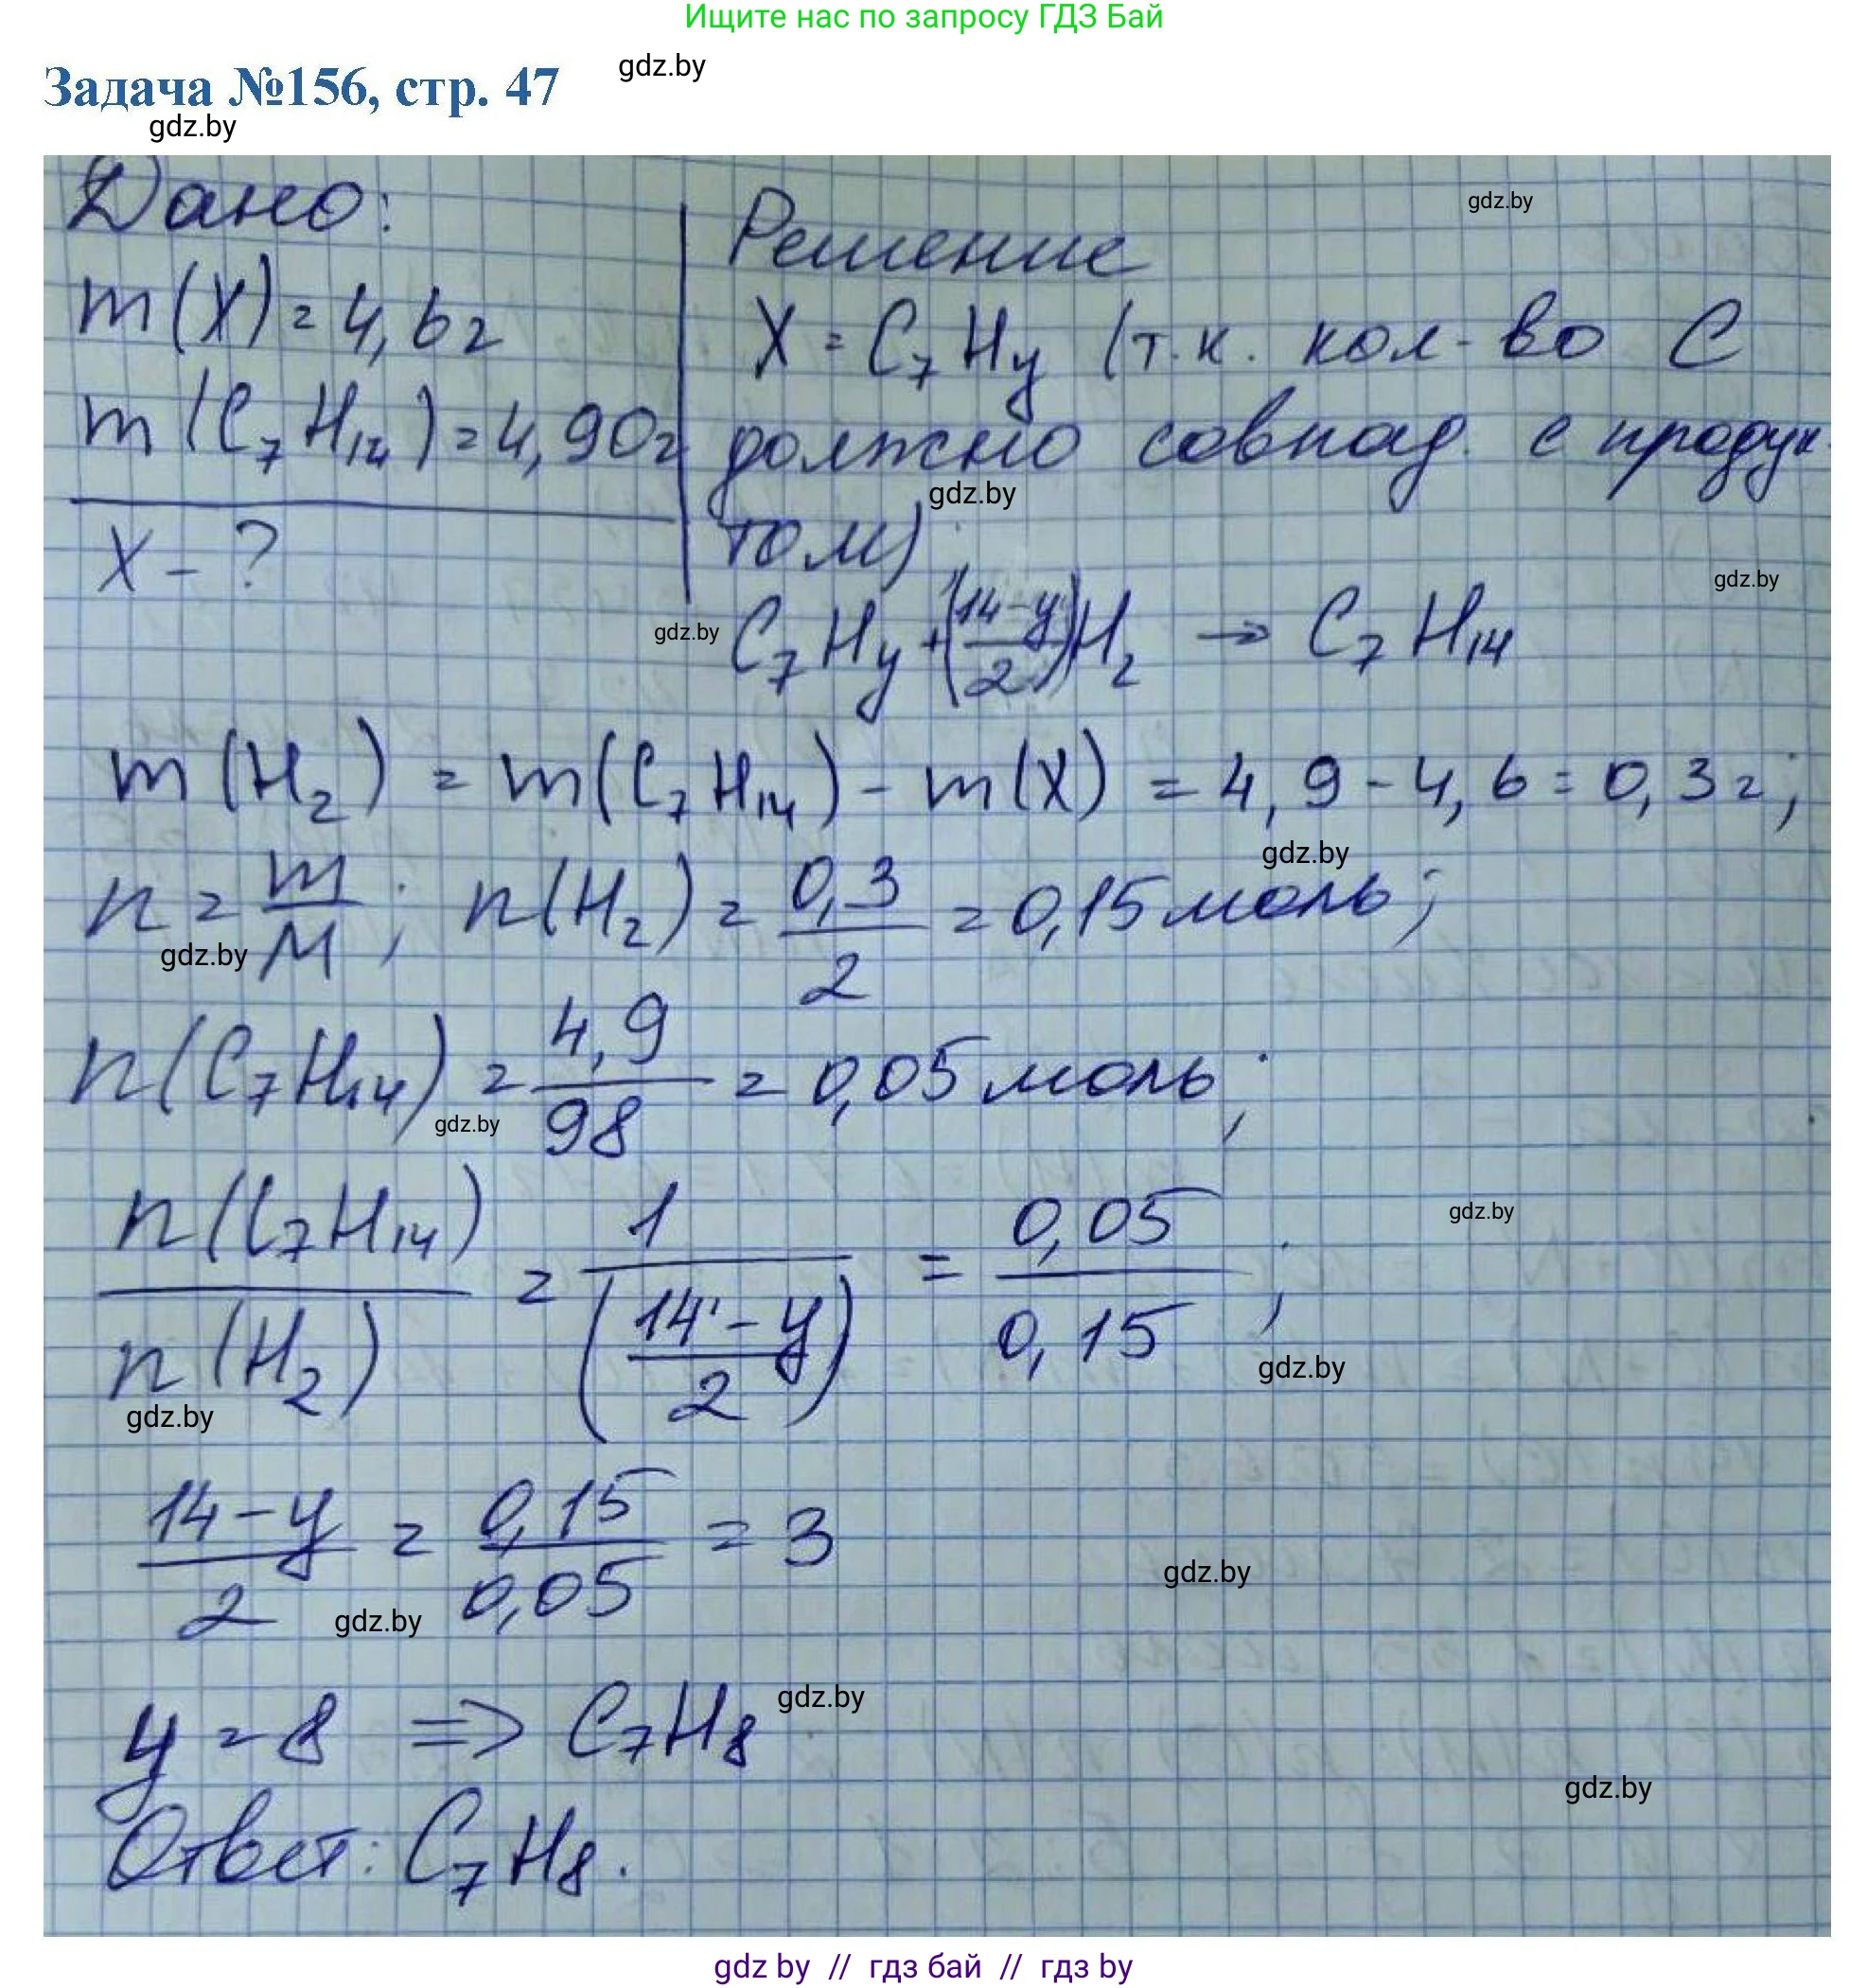 Ищите нас по запросу ГДЗ Бай
Задача №156, стр. 47
gdz.by
gdz.by
Дано:
m(X)=4,6г
m(C₇H₁₄)=4,90г
X - ?
Решение
gdz.by
X = C₇Hy (т.к. кол-во C
должно совпад. с продук-
gdz.by
том).
gdz.by
gdz.by
C₇Hy + ((14-y)/2)H₂ → C₇H₁₄
m(H₂) = m(C₇H₁₄) - m(X) = 4,9 - 4,6 = 0,3г;
gdz.by
n = m/M; n(H₂) = 0,3/2 = 0,15 моль;
gdz.by
n(C₇H₁₄) = 4,9/98 = 0,05 моль;
gdz.by
n(C₇H₁₄)/n(H₂) = 1/((14-y)/2) = 0,05/0,15;
gdz.by
gdz.by
gdz.by
(14-y)/2 = 0,15/0,05 = 3
gdz.by
gdz.by
y = 8 => C₇H₈
gdz.by
gdz.by
Ответ: C₇H₈.
gdz by // гдз бай // гдз by